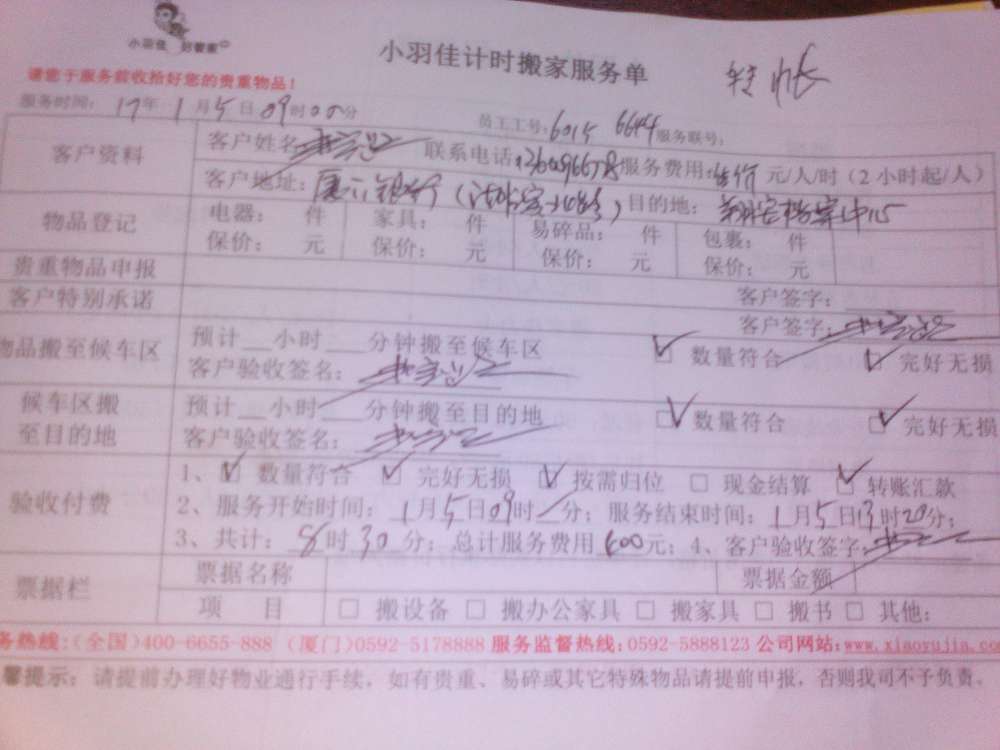 小羽佳 好管家
小羽佳计时搬家服务单 转帐
请您于服务前收拾好您的贵重物品！
服务时间：17年1月5日09时00分 员工工号：6015 6644 服务联号：
客户资料 客户姓名 联系电话： 服务费用：估价元/人/时（2小时起/人）
客户地址： 目的地：
物品登记 电器： 件 家具： 件 易碎品： 件 包裹： 件
保价： 元 保价： 元 保价： 元 保价： 元
贵重物品申报 客户签字：
客户特别承诺 客户签字：
物品搬至候车区 预计__小时___分钟搬至候车区 ☑ 数量符合 ☑ 完好无损
客户验收签名：
候车区搬至目的地 预计__小时___分钟搬至目的地 ☑ 数量符合 ☑ 完好无损
客户验收签名：
验收付费 1、☑ 数量符合 ☑ 完好无损 ☑ 按需归位 □ 现金结算 ☑ 转账汇款
2、服务开始时间：1月5日09时/分；服务结束时间：1月5日13时20分；
3、共计：8时30分；总计服务费用600元；4、客户验收签字：
票据栏 票据名称 票据金额
项 目 □ 搬设备 □ 搬办公家具 □ 搬家具 □ 搬书 □ 其他：
务热线：(全国)400-6655-888 (厦门)0592-5178888 服务监督热线：0592-5888123 公司网站：www.xiaoyujia.co
馨提示：请提前办理好物业通行手续，如有贵重、易碎或其它特殊物品请提前申报，否则我司不予负责。